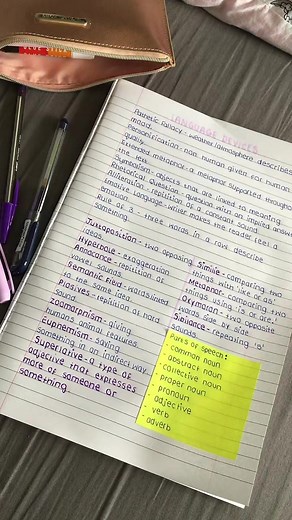 LANGUAGE DEVICES
Pathetic fallacy - weather/atmosphere describes
mood.
Personification - non human given for human
quality
Extended metaphor - a metaphor supported throughout
the text.
Symbolism - objects that are linked to meaning.
Rhetorical question - question with an implied answer
Alliteration - repitition of a constant sound
Emotive Language - writer makes the reader feel a
emotion.
Rule of 3 - three words in a row describe
something.
Juxtaposition - two opposing
ideas.
Hyperbole - exaggeration
Assonance - repitition of
vowel sounds.
Semantic field - words linked
to the same idea.
Plosives - repitition of hard
sound.
zoomorphism - giving
human's animal features.
Euphemism - saying
something in an indirect way
Superlative - type of
adjective that expresses
more of someone or
something.
Simile - comparing two
things with 'like or as'
Metaphor - comparing two
things using 'is or are'.
Oxymoron - two opposite
words side by side
Sibilance - repeating 's'
sounds.
Parts of speech:
- common noun
- abstract noun
- collective noun
- proper noun
- pronoun
- adjective
- verb
- adverb